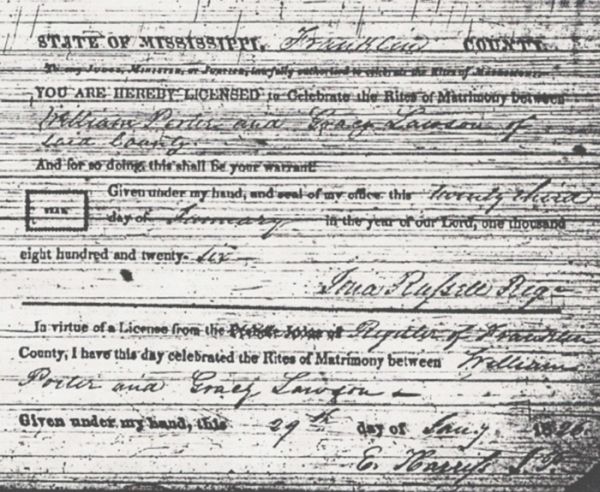 STATE OF MISSISSIPPI, Franklin COUNTY.
To any Judge, Minister, or Justice, lawfully authorised to celebrate the Rites of Matrimony:
YOU ARE HEREBY LICENSED to Celebrate the Rites of Matrimony between
William Porter and Gracy Lawson of
said County.
And for so doing, this shall be your warrant.
Given under my hand, and seal of my office, this twenty third
SEAL
day of January in the year of our Lord, one thousand
eight hundred and twenty- six
Russell Reg
In virtue of a License from the Register of Franklin
County, I have this day celebrated the Rites of Matrimony between William
Porter and Gracy Lawson
Given under my hand, this 29th day of Jany 1826
E. Harriss J.P.